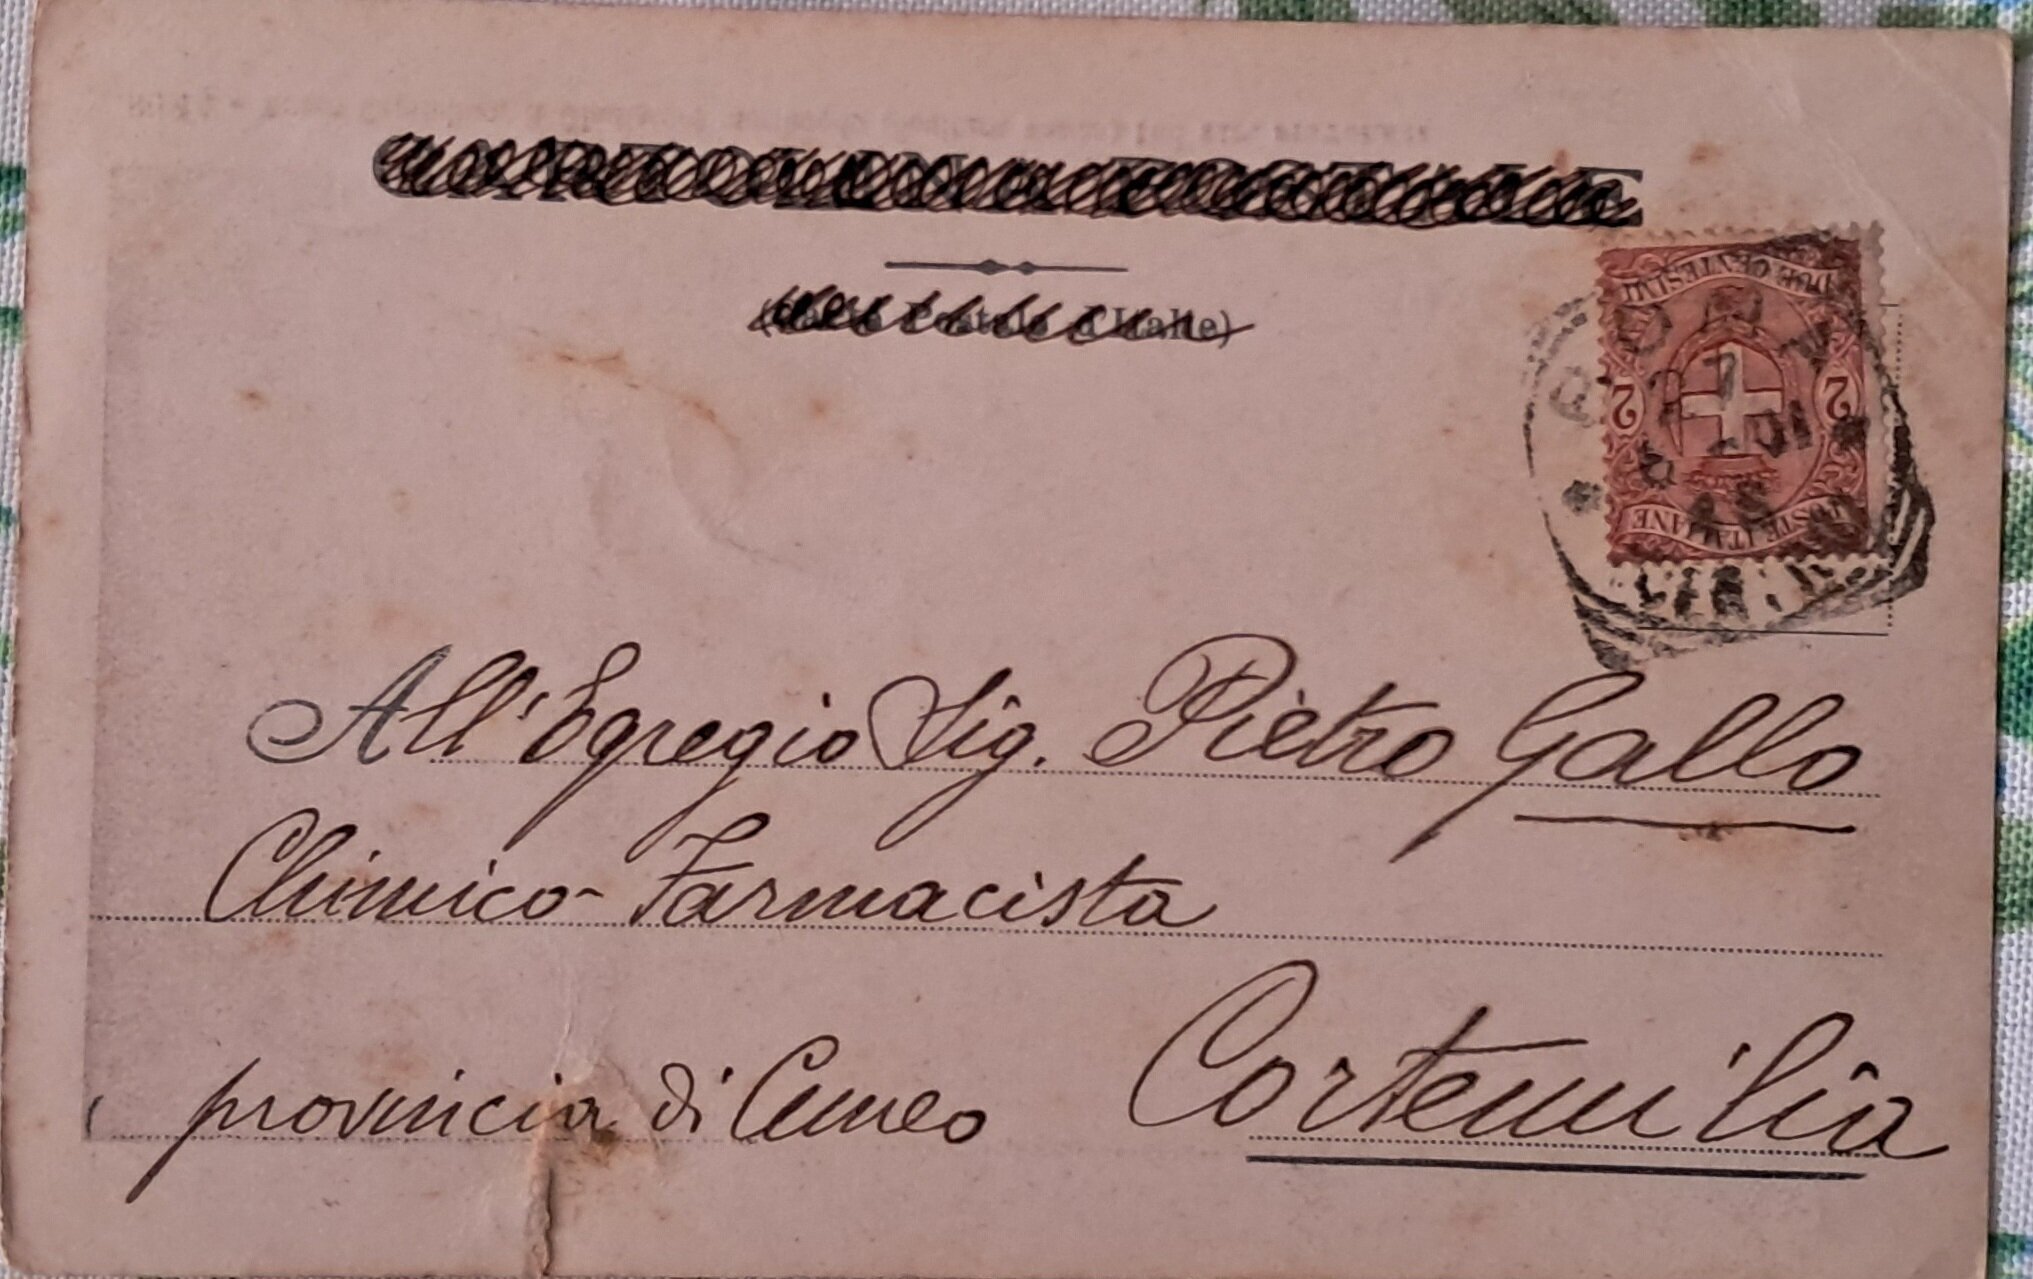 CARTOLINA POSTALE
(Carte Postale d'Italie)
DUE CENTESIMI
2 2
POSTE ITALIANE
All'Egregio Sig. Pietro Gallo
Chimico-Farmacista
provincia di Cuneo Cortemilia